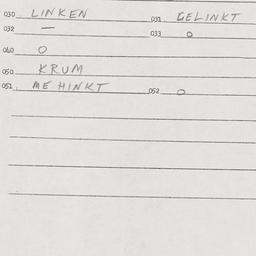 030 LINKEN 031 GELINKT
032 — 033 O
040 O
050 KRUM
051 ME HINKT 052 O